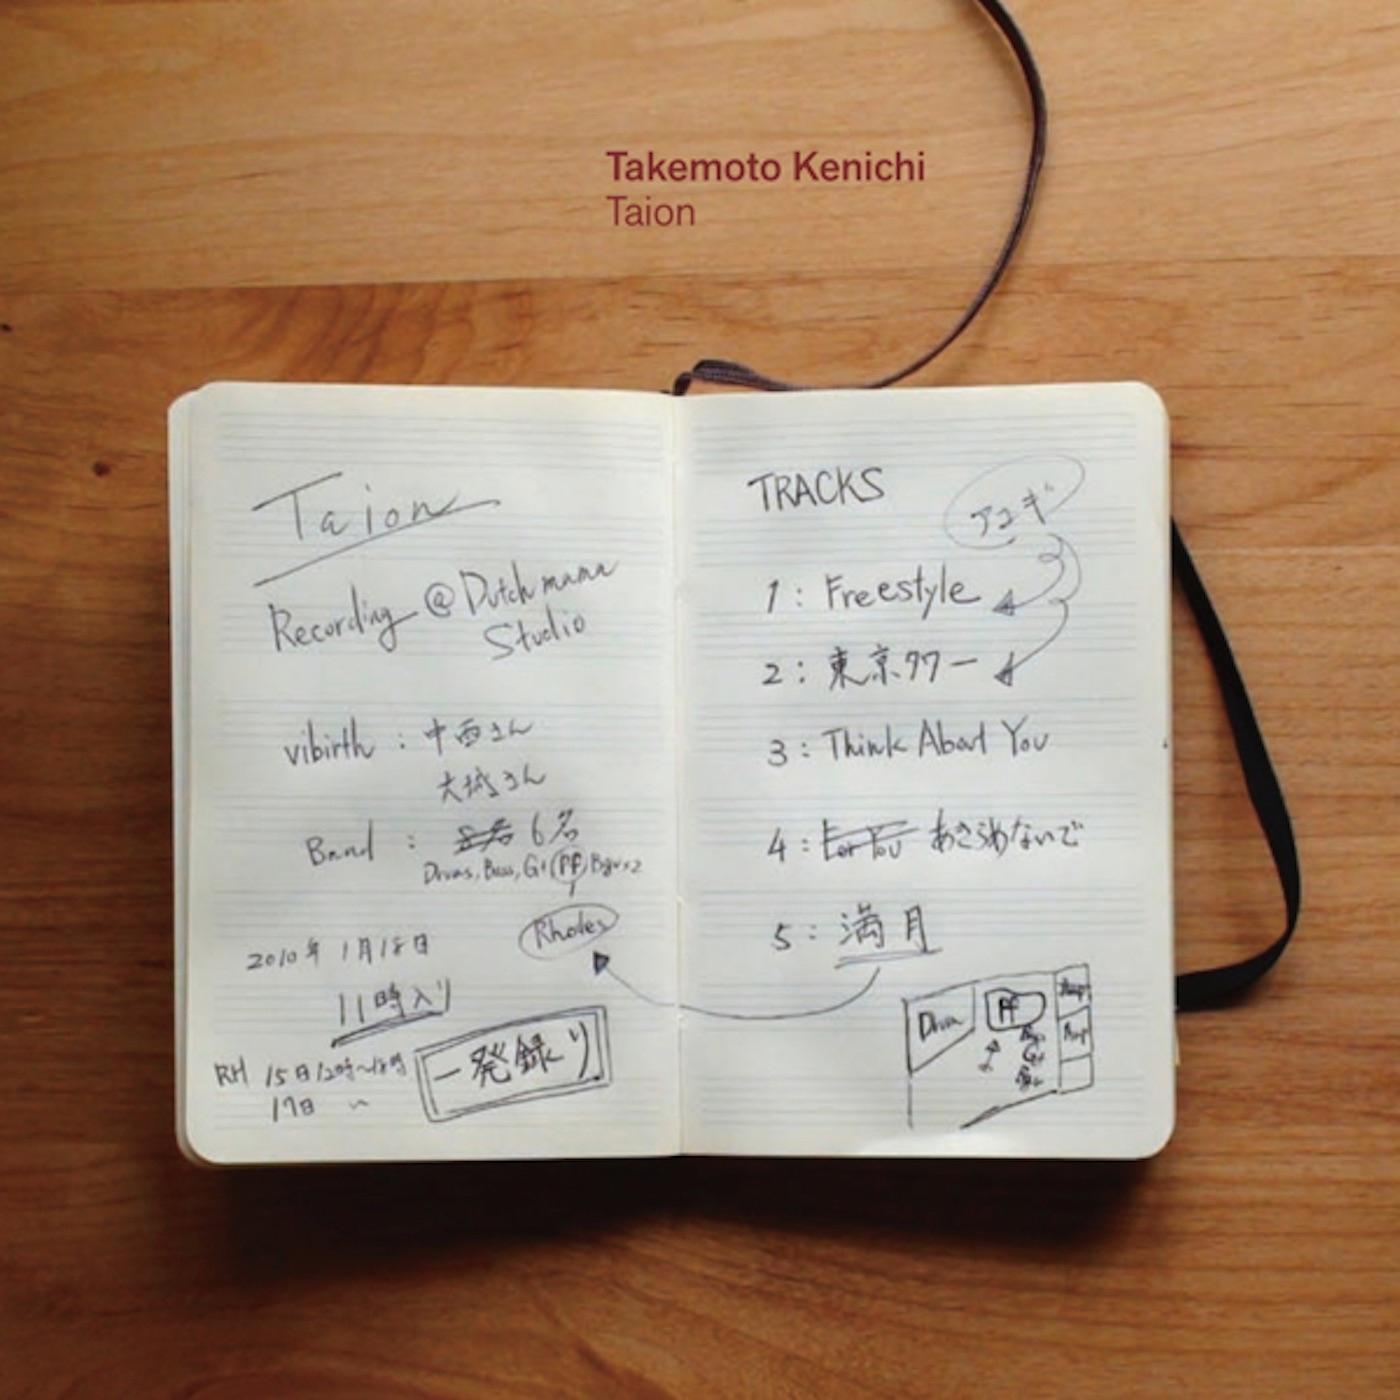 Takemoto Kenichi
Taion
Taion
Recording @ Dutch mama
Studio
vibirth : 中西さん
大城さん
Band : 6名
Drums, Bass, Gt, Pf, Bgv×2
Rhodes
2010年 1月18日
11時入り
RH 15日12時〜18時
17日 〃
一発録り
TRACKS
アコギ
1 : Freestyle
2 : 東京タワー
3 : Think About You
4 : For You あきらめないで
5 : 満月
Drum
Pf
Amp
Amp